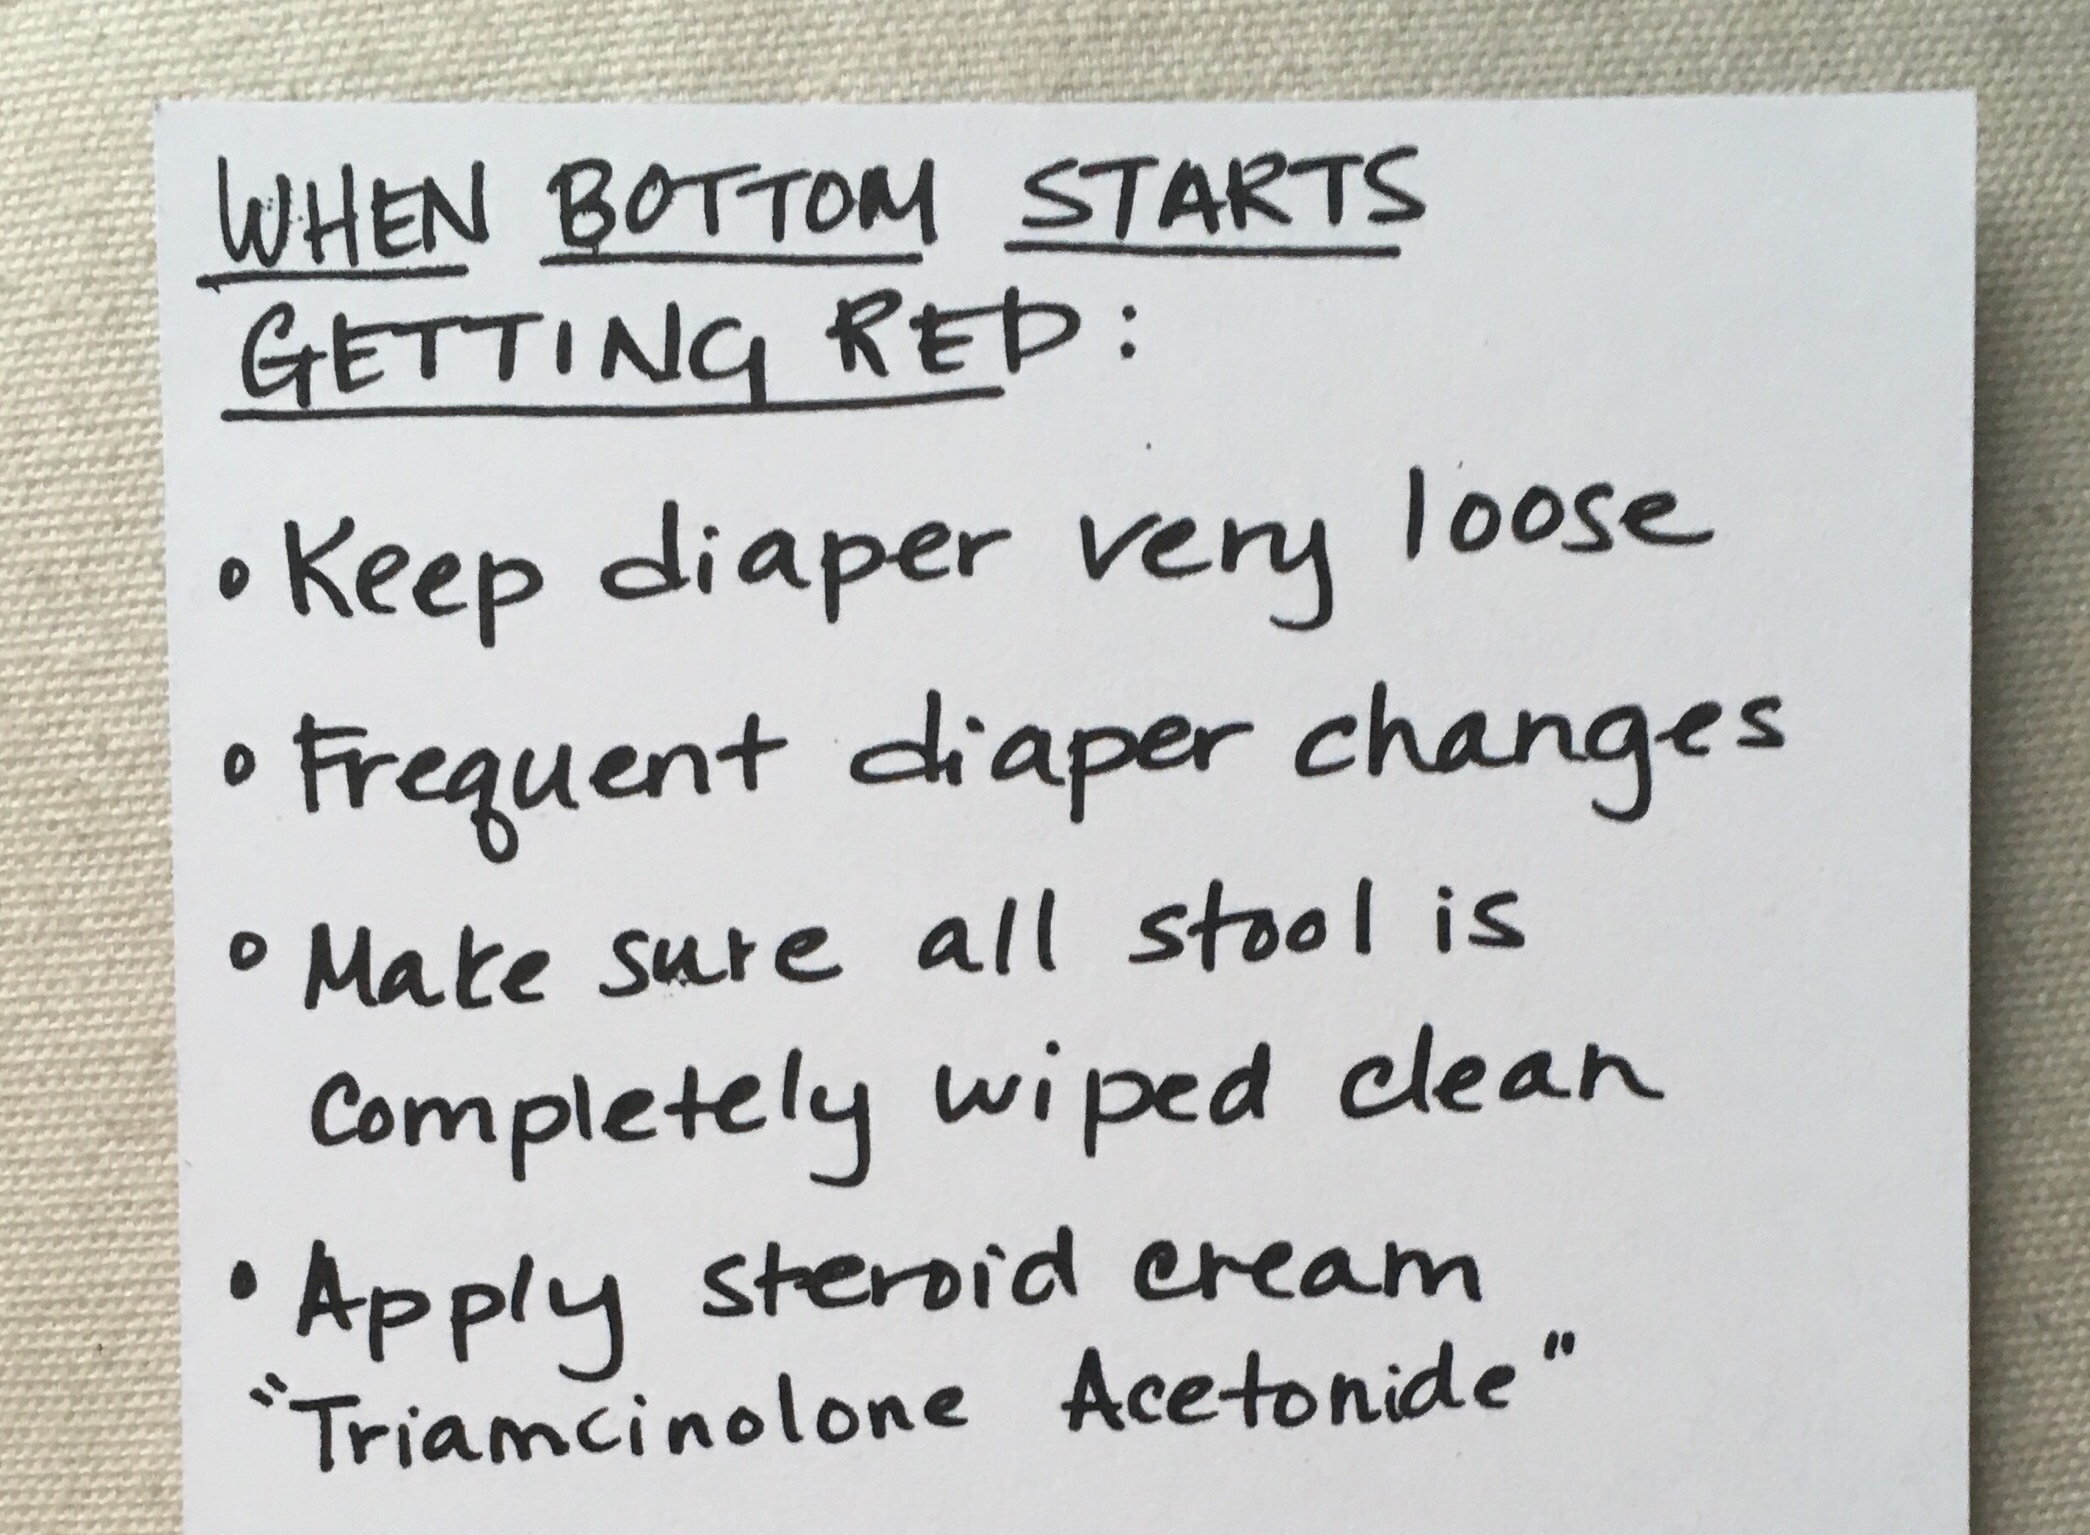 WHEN BOTTOM STARTS
GETTING RED:
• Keep diaper very loose
• Frequent diaper changes
• Make sure all stool is
completely wiped clean
• Apply steroid cream
"Triamcinolone Acetonide"